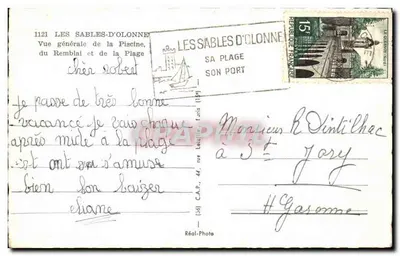 1121 LES SABLES-D'OLONNE
Vue générale de la Piscine,
du Remblai et de la Plage
LES SABLES D'OLONNE
SA PLAGE
SON PORT
15F
chèr robert
je passe de très bonne
vacance je vais chaque
après midi à la plage
et ont s'amuse
bien bon baizer
eliane
Monsieur R Dintilhac
à St Jory
Hte Garonne
Réal-Photo